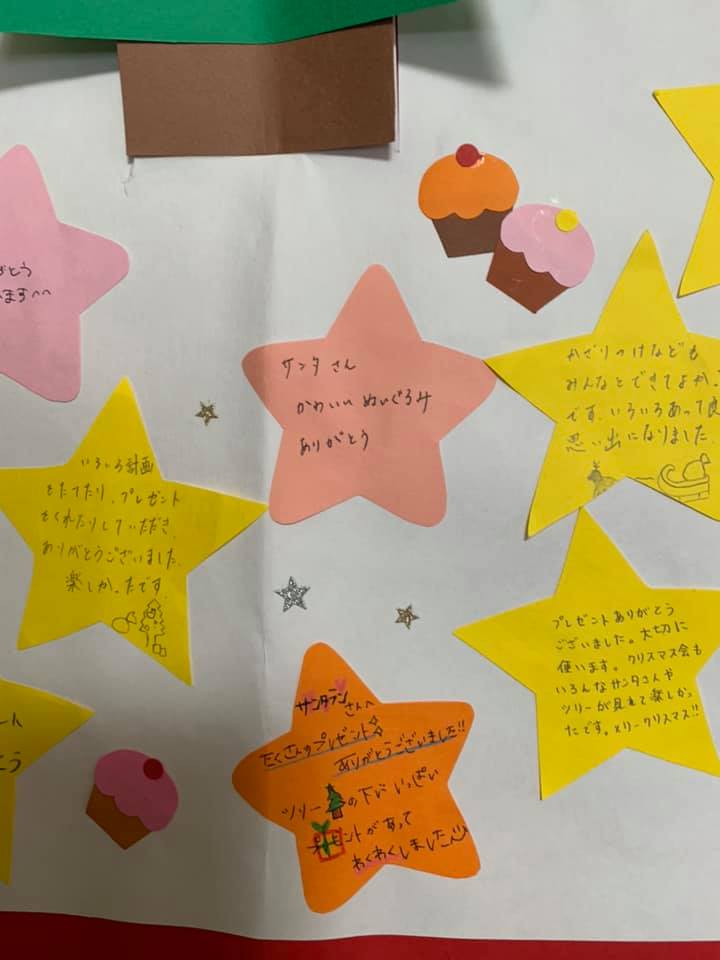 がとう
ます^^
サンタさん
かわいいぬいぐるみ
ありがとう
かざりつけなども
みんなとできてよかっ
です。いろいろあって良
思い出になりました。
いろいろ計画
をたてたり、プレゼント
をくれたりしていただき、
ありがとうございました。
楽しかったです。
プレゼントありがとう
ございました。大切に
使います。クリスマス会も
いろんなサンタさんや
ツリーが見れて楽しかっ
たです。メリークリスマス!!
サンタランさんへ
たくさんのプレゼント
ありがとうございました!!
ツリー🎄の下にいっぱい
プレゼントがあって
わくわくしました